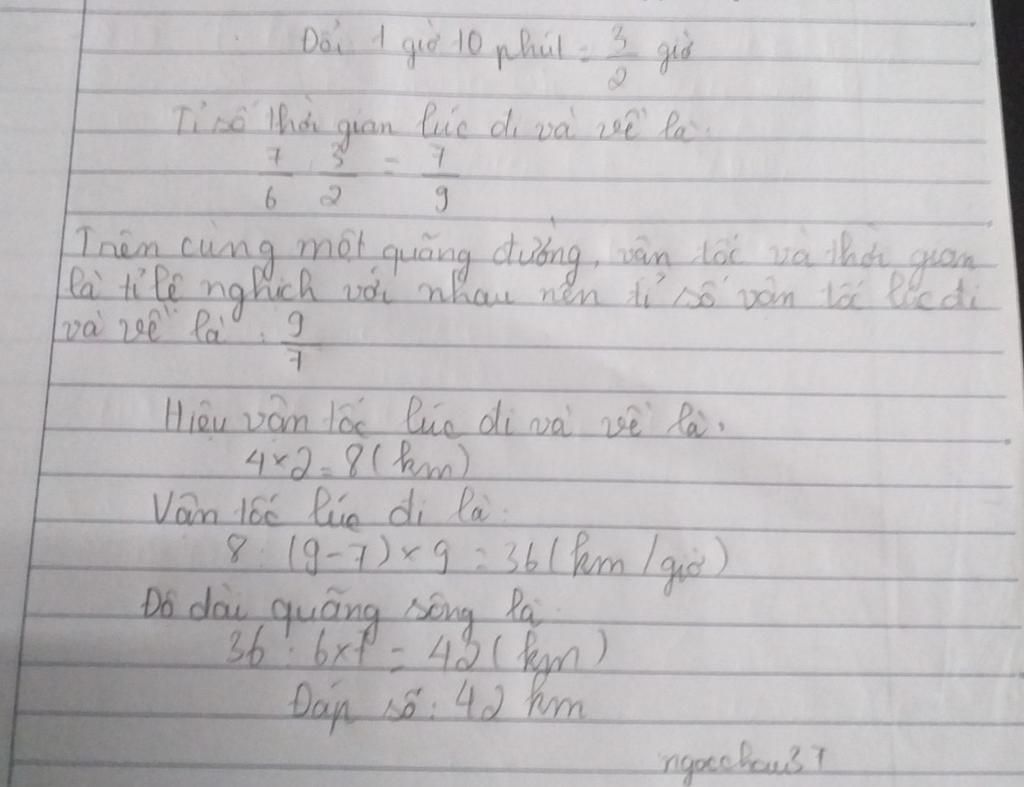 Đổi 1 giờ 10 phút = 3/2 giờ
Tỉ số thời gian lúc đi và về là:
7/6 : 3/2 = 7/9
Trên cùng một quãng đường, vận tốc và thời gian
là tỉ lệ nghịch với nhau nên tỉ số vận tốc lúc đi
và về là : 9/7
Hiệu vận tốc lúc đi và về là:
4 x 2 = 8 (km)
Vận tốc lúc đi là:
8 : (9 - 7) x 9 = 36 (km/giờ)
Độ dài quãng sông là:
36 : 6 x 7 = 42 (km)
Đáp số: 42 km
ngocchau37